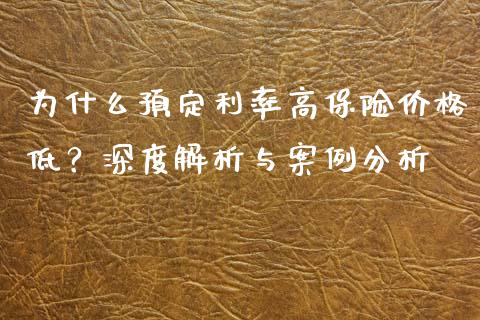 为什么预定利率高保险价格
低？深度解析与案例分析